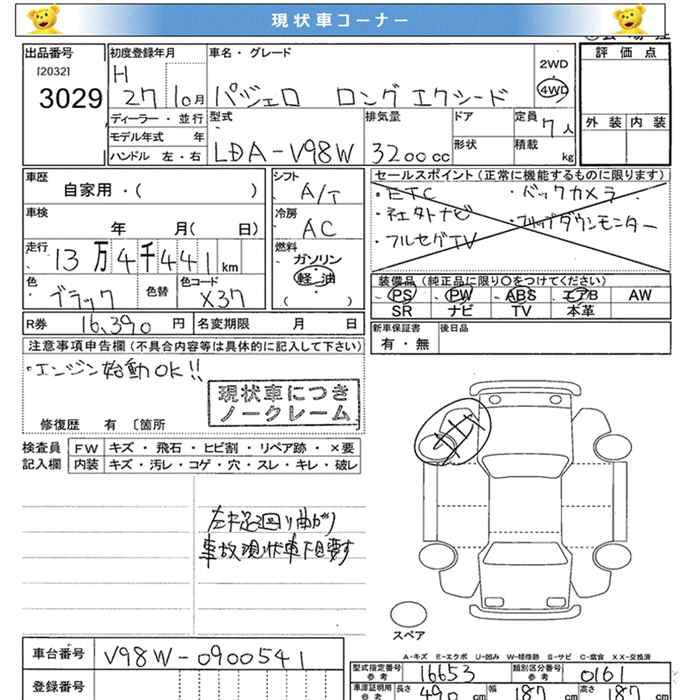 現状車コーナー
出品番号 初度登録年月 車名・グレード 評価点
[2032] H 2WD
3029 27 10月 パジェロ ロング エクシード 4WD
ディーラー・並行 型式 排気量 ドア 定員 7人 外装 内装
モデル年式 年 形状 積載
ハンドル 左・右 LDA-V98W 3200cc kg
車歴 シフト セールスポイント(正常に機能するものに限ります)
自家用・( ) A/T ・ETC ・バックカメラ
車検 冷房 ・社外ナビ ・フリップダウンモニター
年 月( 日) AC ・フルセグTV
走行 燃料
13万4千441km ガソリン
軽油 装備品(純正品に限り○をつけてください)
色 色替 色コード ( ) PS PW ABS エアB AW
ブラック X37 SR ナビ TV 本革
R券 16,390円 名変期限 月 日 新車保証書 後日品
有・無
注意事項申告欄(不具合内容等は具体的に記入して下さい)
・エンジン始動OK!!
現状車につき
ノークレーム
修復歴 有 〔箇所
検査員 FW キズ・飛石・ヒビ割・リペア跡・×要
記入欄 内装 キズ・汚レ・コゲ・穴・スレ・キレ・破レ
左足廻り曲がり
事故現状車下見要す
スペア
車台番号 V98W-0900541
A-キズ E-エクボ U-凹み W-修理跡 S-サビ C-腐食 XX-交換済
型式指定番号 参考 16653 類別区分番号 参考 0161
登録番号
車庫証明用 参考 長さ 490cm 幅 187cm 高さ 187cm